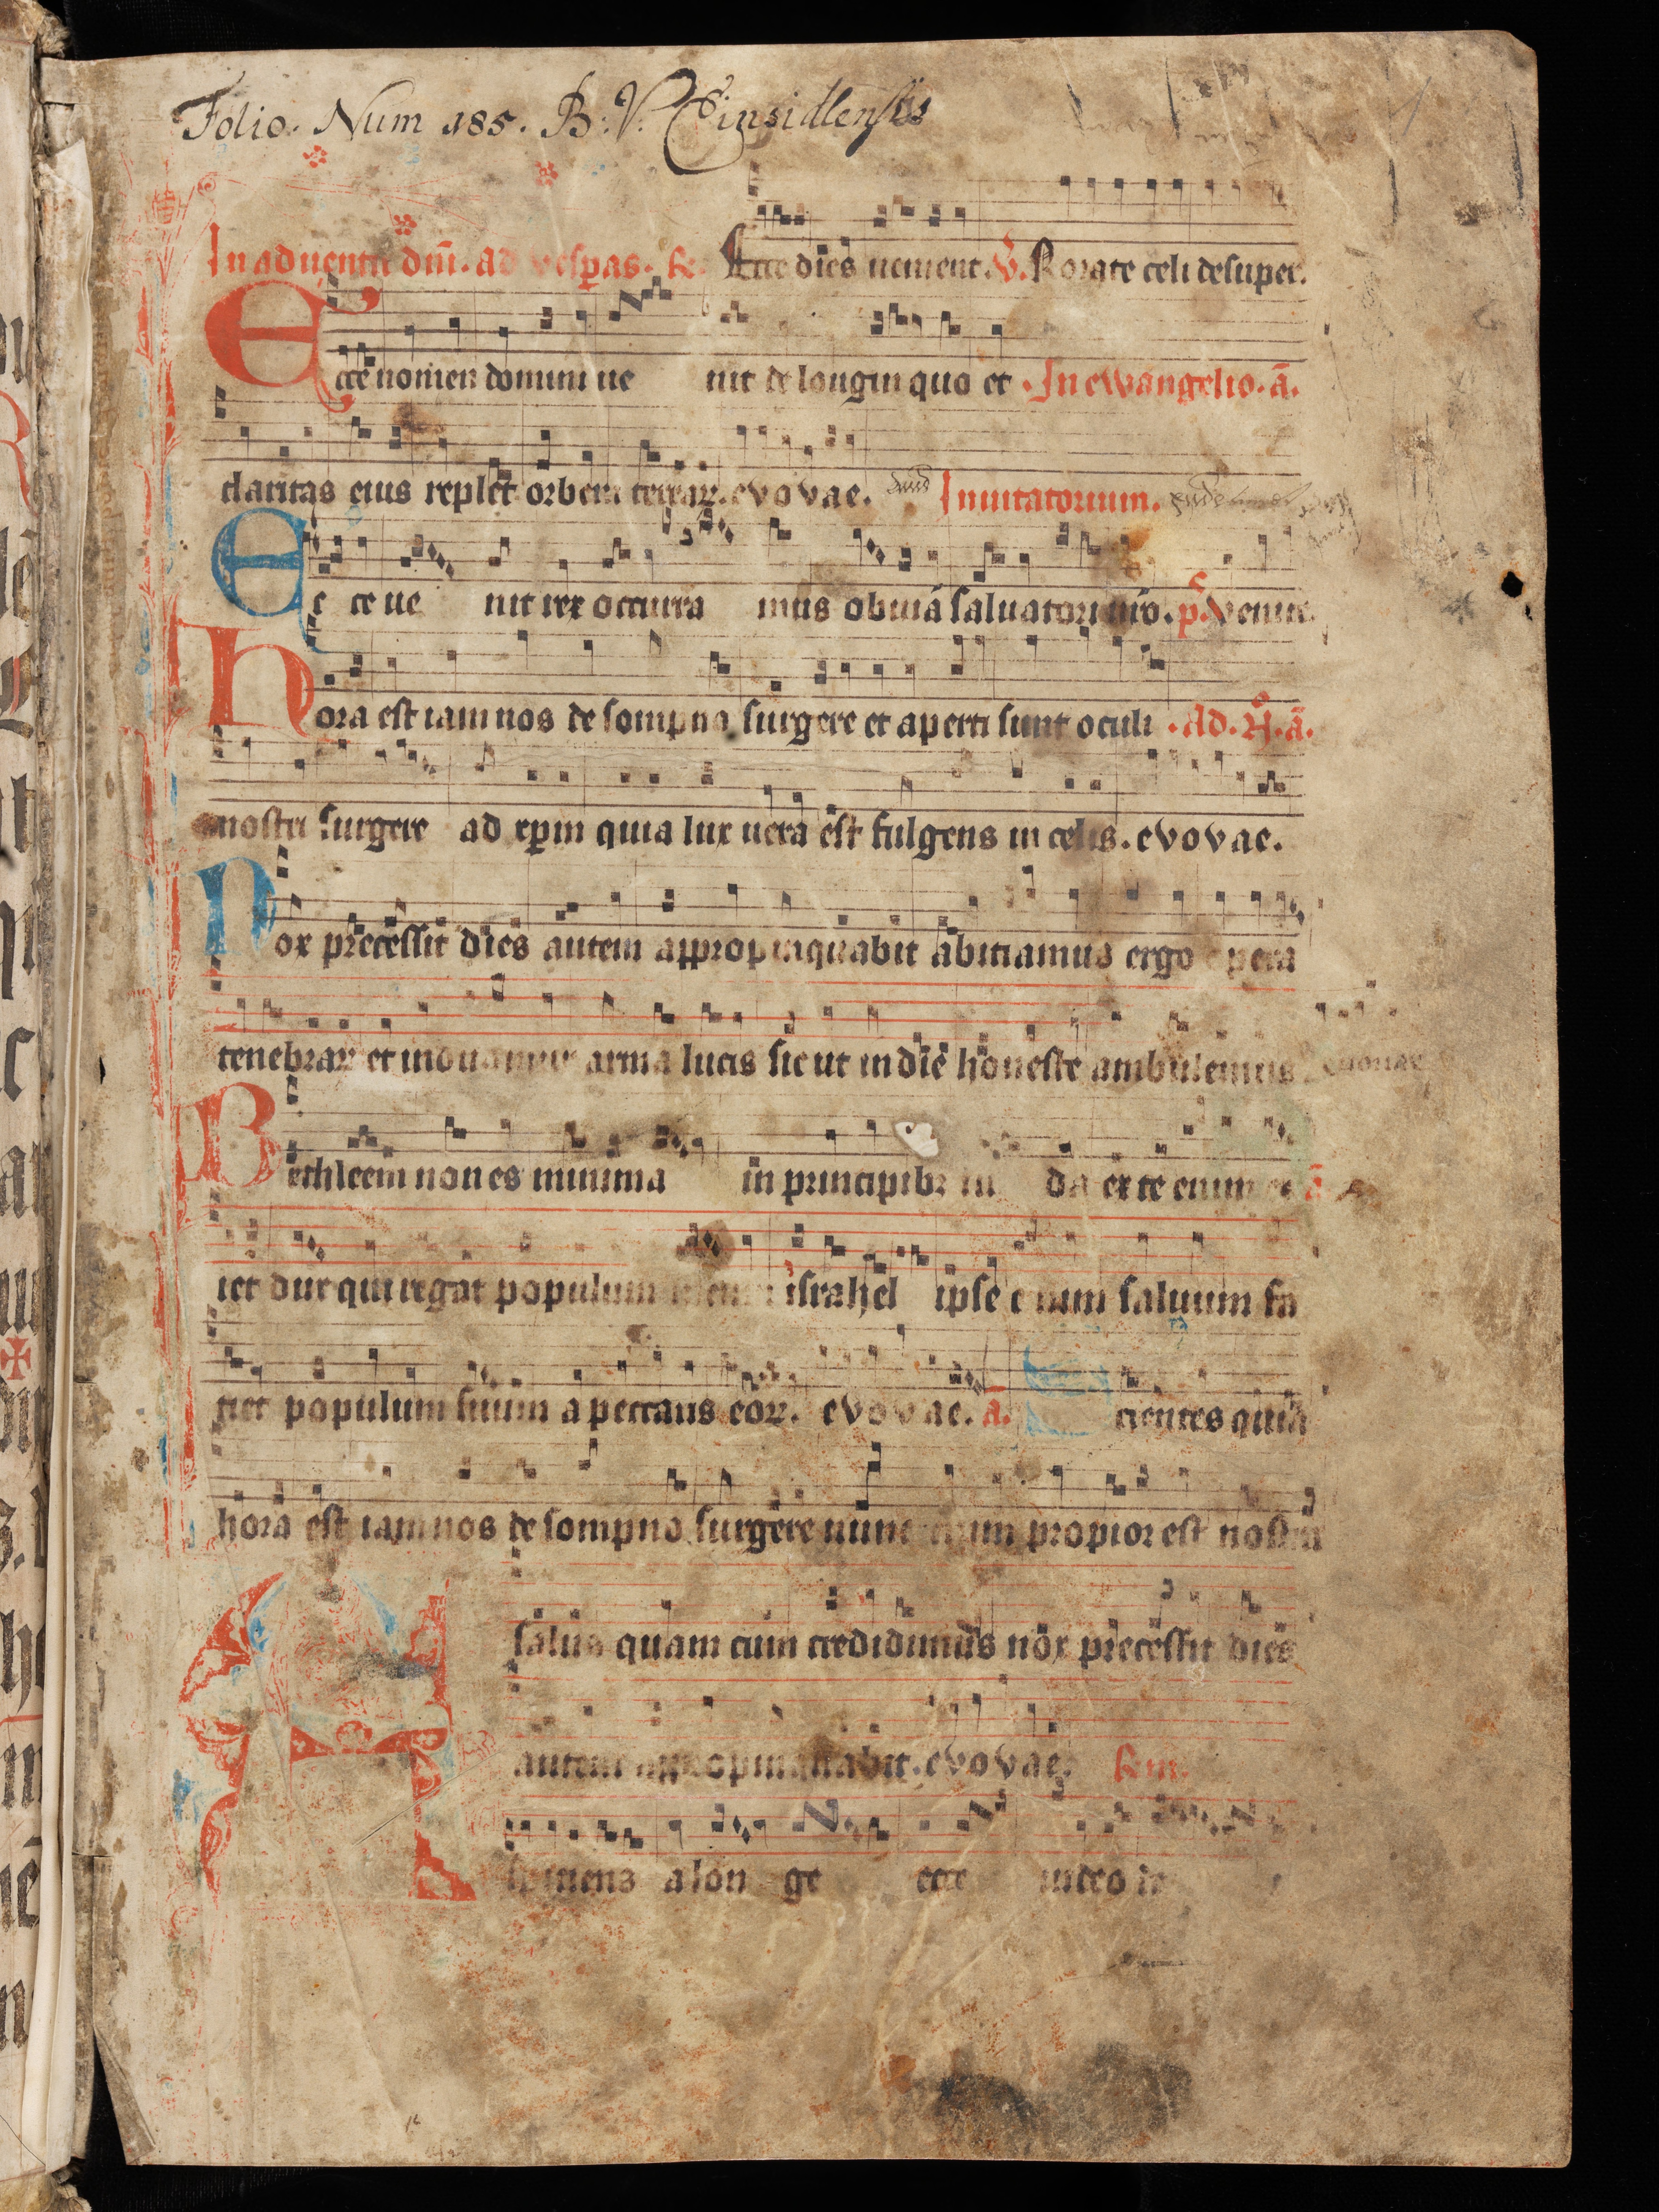 Folio. Num 185. B: V. Einsidlensis
In aduentu dn̄i. ad vesp̲as. R. Ecce dies uenient. V. Rorate celi desuper.
Ecce nomen domini ue nit de longin quo et . In ewangelio. ā.
claritas eius replet orbem terrarꝝ. evovae. Inuitatorium.
Ec ce ue nit rex occurra mus obuiā saluatori nr̄o. p̄. Venite.
Hora est iam nos de sompno surgere et aperti sunt oculi . Ad. N. ā.
nostri surgere ad xp̄m quia lux uera est fulgens in celis. evovae.
Nox precessit dies autem appropinquabit abiciamus ergo opera
tenebrarꝝ et induamur arma lucis sicut in die honeste ambulemus euouae
Bethleem non es minima in principibꝫ iu da ex te enim ex ā
iet dux qui regat populum meum israhel ipse e nim saluum fa
ciet populum suum a peccatis eorꝝ. evovae. ā. cientes quia
hora est iam nos de sompno surgere nunc enim propior est nostra
salus quam cum credidimus nox precessit dies
autem appropinquabit. evovae. R. im.
A spiciens a lon ge ecce uideo de